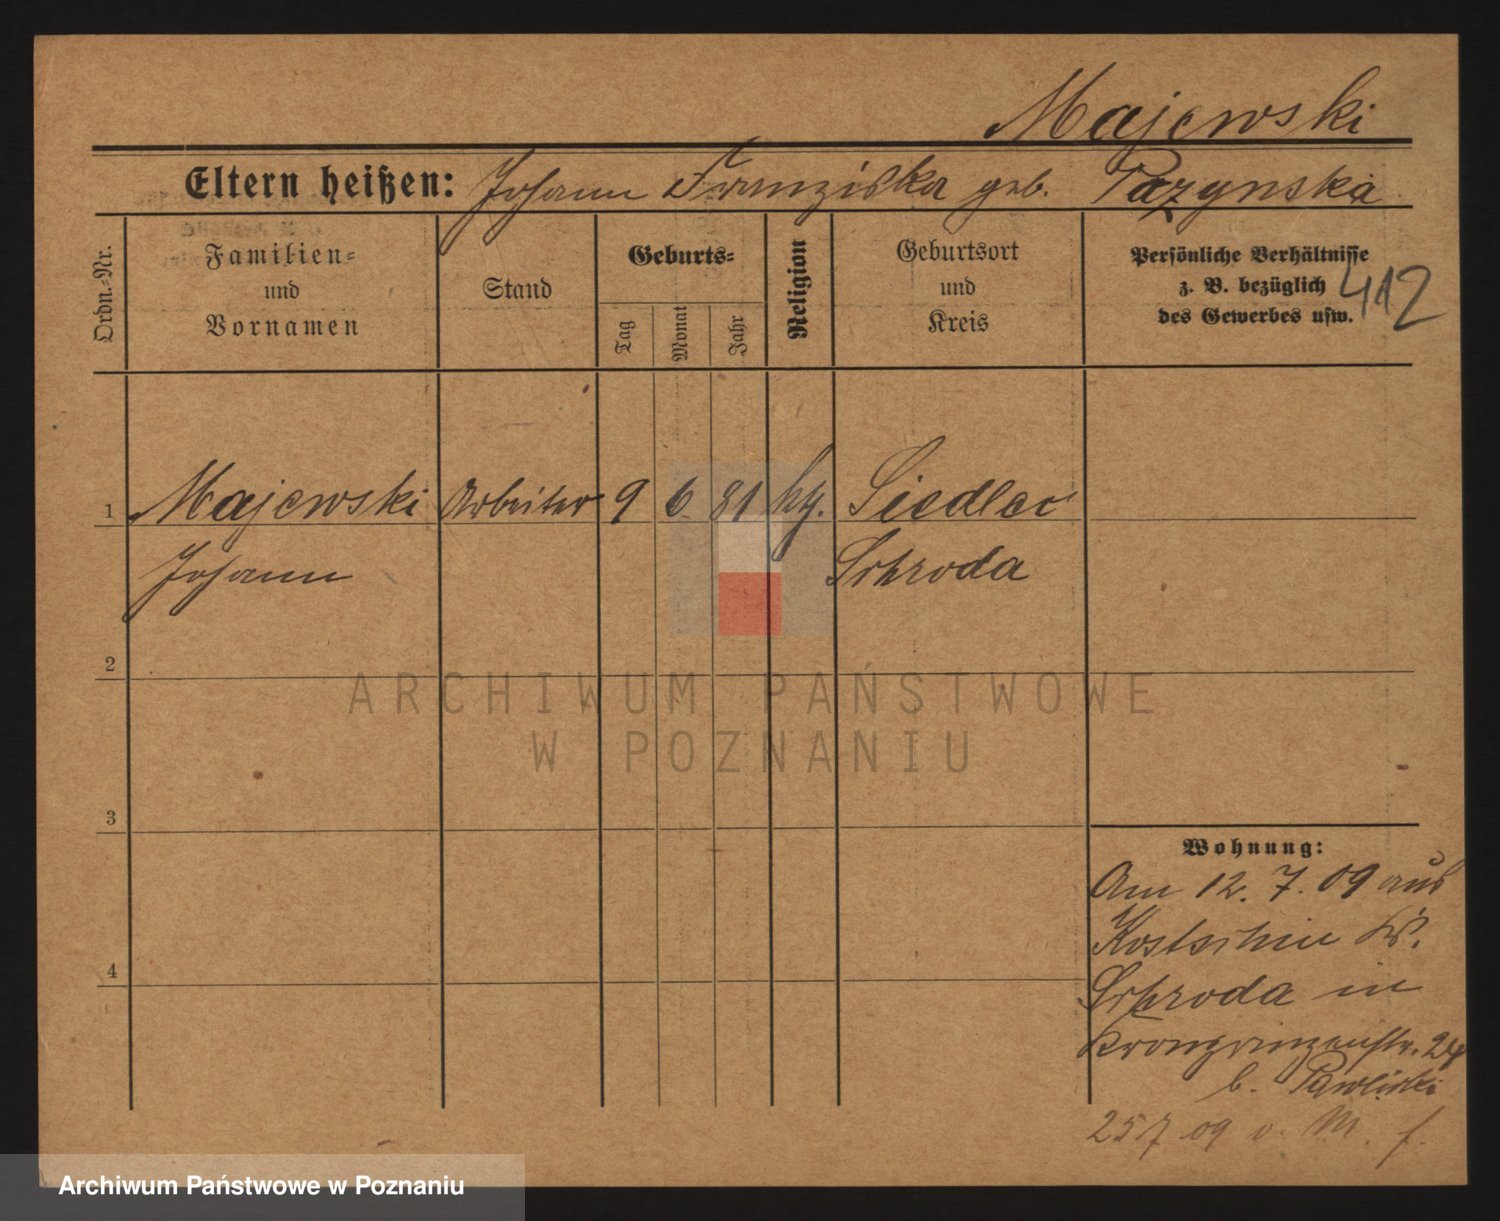 Majewski
Eltern heißen: Johann Franziska geb. Pazynska
Ordn.-Nr.
Familien-
und
Vornamen
Stand
Geburts-
Tag
Monat
Jahr
Religion
Geburtsort
und
Kreis
Persönliche Verhältnisse
z. B. bezüglich
des Gewerbes usw.
412
1 Majewski Arbeiter 9 6 81 kth. Siedlec
Johann Schroda
2
ARCHIWUM PAŃSTWOWE
W POZNANIU
3
Wohnung:
Am 12. 7. 09 aus
Kostschin Kr.
4
Schroda in
Kronprinzenstr. 24
b.
25 7 09 v. M. f.
Archiwum Państwowe w Poznaniu